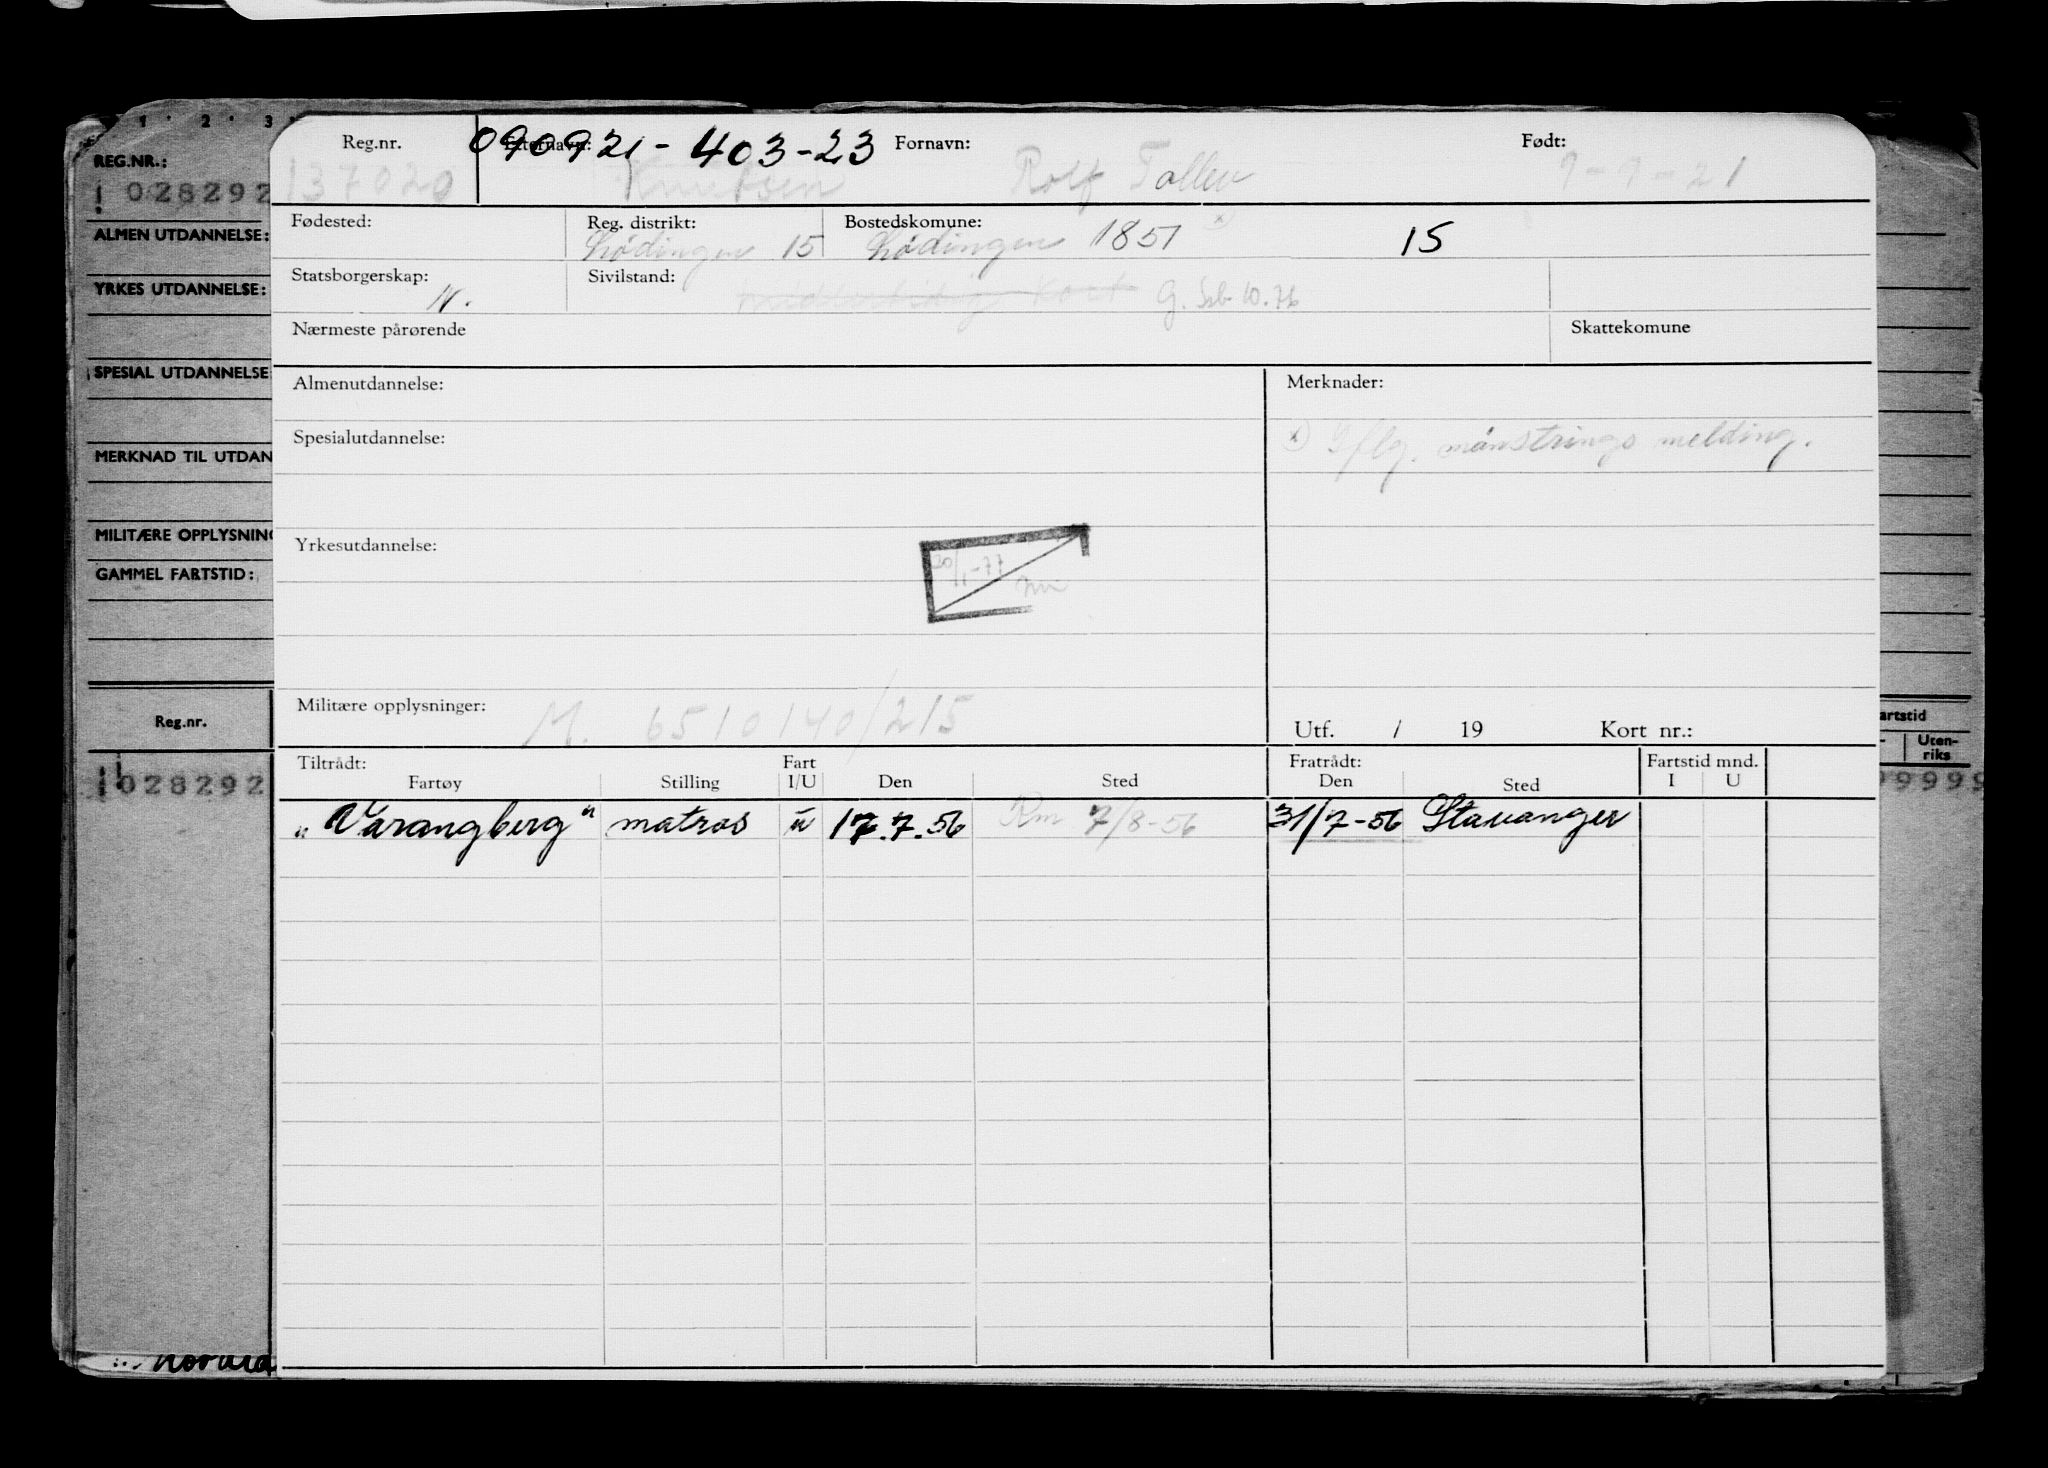 1 2 3
REG.NR.:
028292
ALMEN UTDANNELSE:
YRKES UTDANNELSE:
SPESIAL UTDANNELSE
MERKNAD TIL UTDAN
MILITÆRE OPPLYSNING
GAMMEL FARTSTID:
Reg.nr.
028292
Reg.nr. Etternavn: 090921-403-23 Fornavn: Født:
137020 Knutsen Rolf Tollev 9-9-21
Fødested: Reg. distrikt: Bostedskomune:
Lødingen 15 Lødingen 1851 x) 15
Statsborgerskap: Sivilstand:
N. midlertidig kort G. Ssb 10.76
Nærmeste pårørende Skattekomune
Almenutdannelse: Merknader:
Spesialutdannelse: x) Iflg. mønstrings melding.
Yrkesutdannelse:
20/1-77
Militære opplysninger: M. 6510140/215
Utf. / 19 Kort nr.:
Tiltrådt: Fart Fratrådt: Fartstid mnd.
Fartøy Stilling I/U Den Sted Den Sted I U
"Varangberg" matros u 17.7.56 Rm 7/8-56 31/7-56 Stavanger
artstid
Uten-
riks
9999